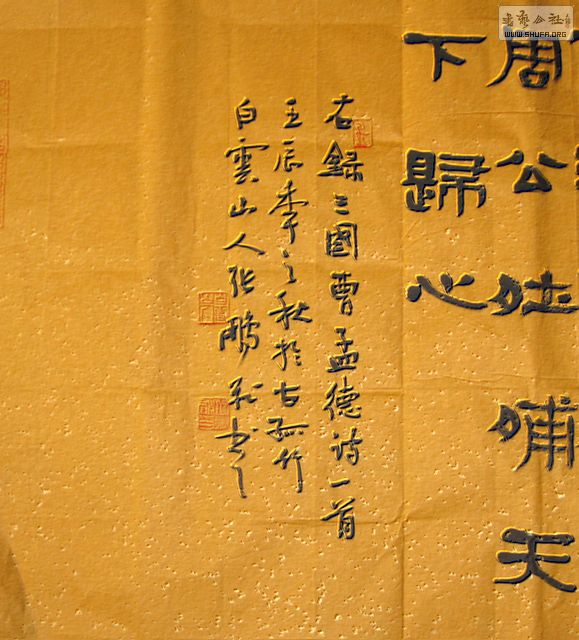 周公吐哺天
下歸心
右録三國曹孟德詩一首
壬辰季之秋於古孤竹
白雲山人張鵬飛书之
书艺公社
WWW.SHUFA.ORG